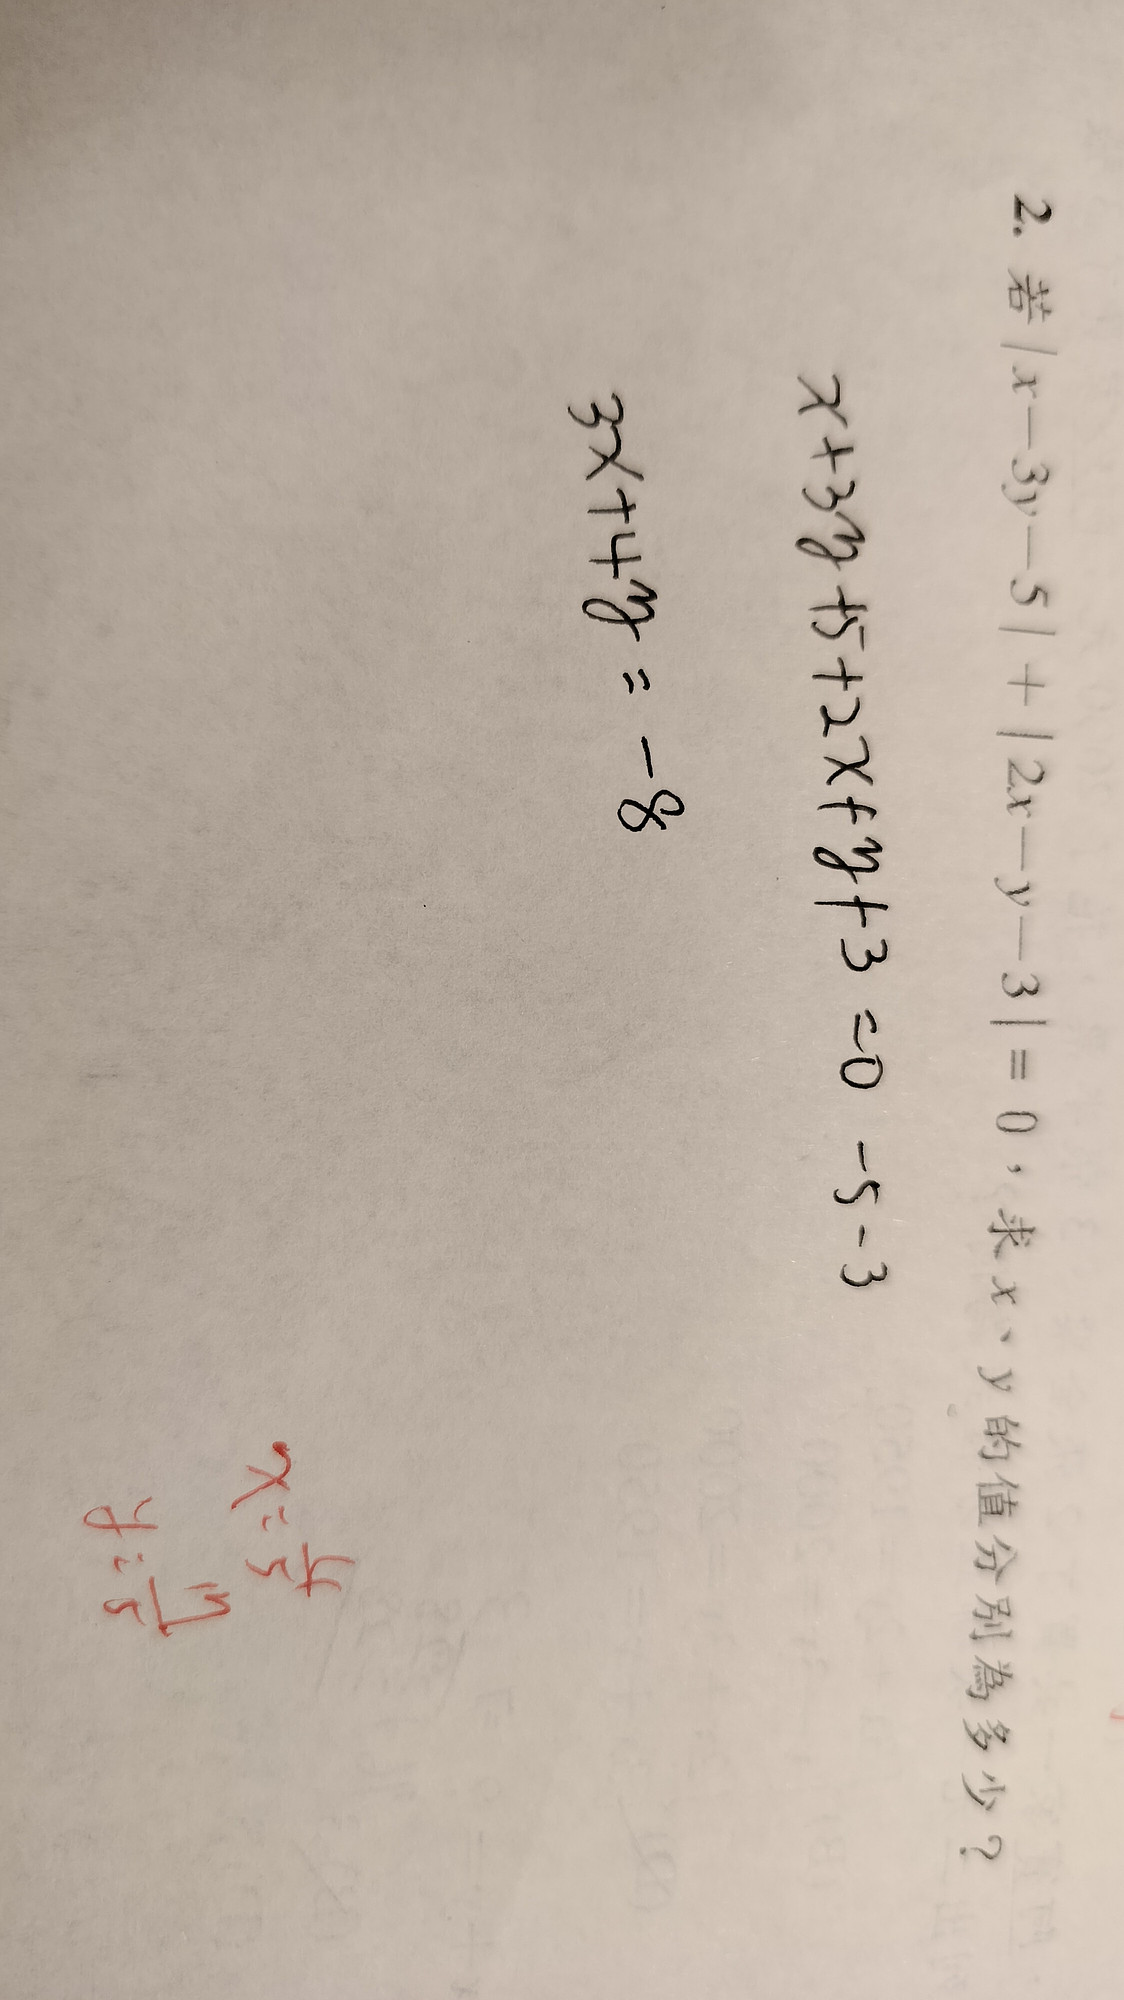 2. 若|x-3y-5|+|2x-y-3|=0，求x、y的值分別為多少？
x+3y+5+2x+y+3=0-5-3
3x+4y=-8
x=4/5